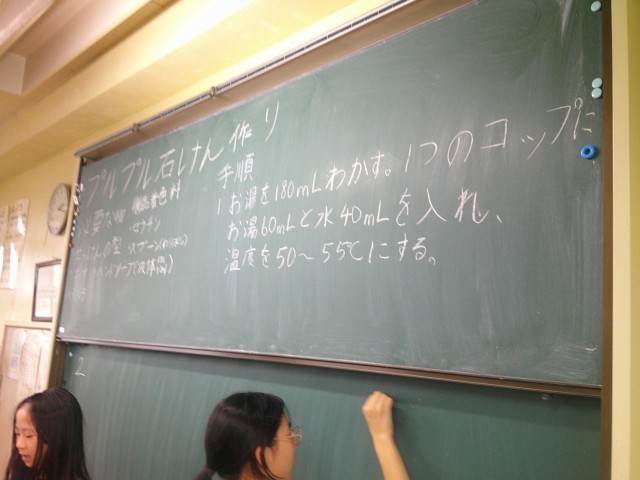 プルプル石けん作り
手順
1 お湯を180mLわかす。1つのコップに
お湯60mLと水40mLを入れ、
温度を50〜55℃にする。
ゼラチン
型 スプーン
ハンドソープ(液体
2